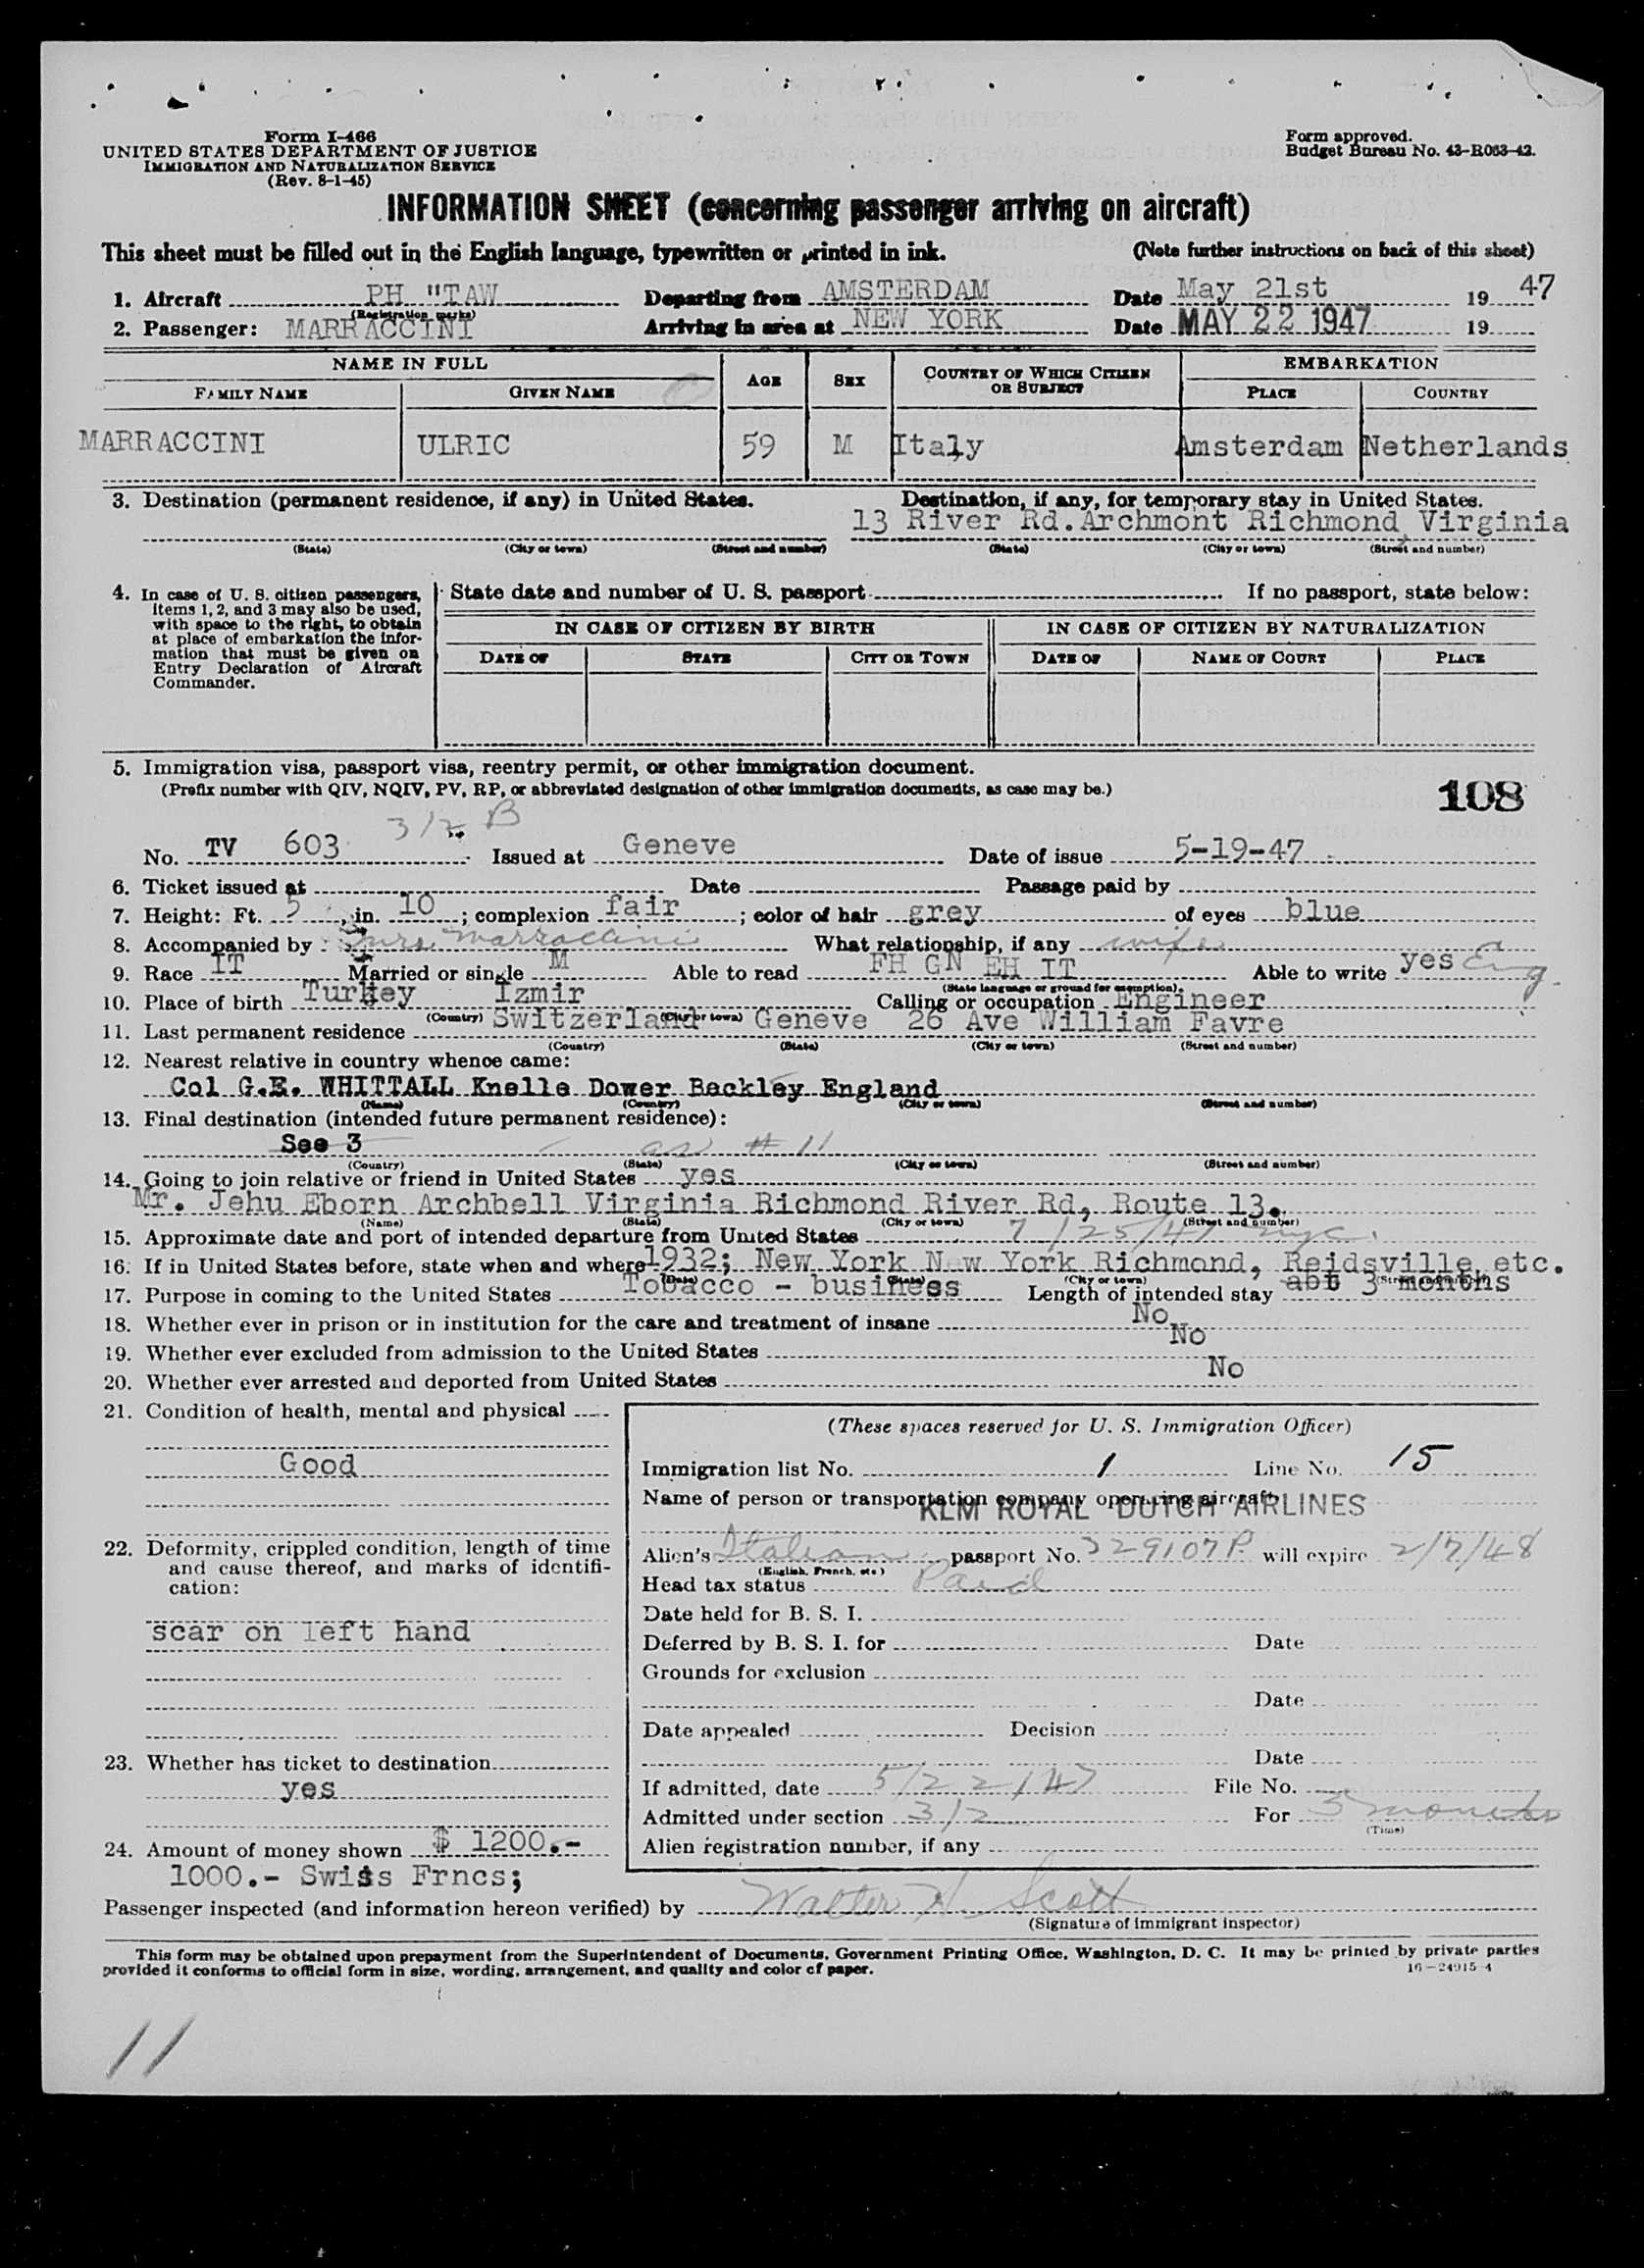 Form I-466
UNITED STATES DEPARTMENT OF JUSTICE
IMMIGRATION AND NATURALIZATION SERVICE
(Rev. 8-1-45)
Form approved.
Budget Bureau No. 43-R063-42.
INFORMATION SHEET (concerning passenger arriving on aircraft)
This sheet must be filled out in the English language, typewritten or printed in ink. (Note further instructions on back of this sheet)
1. Aircraft PH "TAW Departing from AMSTERDAM Date May 21st 19 47
(Registration marks)
2. Passenger: MARRACCINI Arriving in area at NEW YORK Date MAY 22 1947 19
NAME IN FULL AGE SEX COUNTRY OF WHICH CITIZEN OR SUBJECT EMBARKATION
FAMILY NAME GIVEN NAME PLACE COUNTRY
MARRACCINI ULRIC 59 M Italy Amsterdam Netherlands
3. Destination (permanent residence, if any) in United States. Destination, if any, for temporary stay in United States.
13 River Rd. Archmont Richmond Virginia
(State) (City or town) (Street and number) (State) (City or town) (Street and number)
4. In case of U. S. citizen passengers, items 1, 2, and 3 may also be used, with space to the right, to obtain at place of embarkation the information that must be given on Entry Declaration of Aircraft Commander.
State date and number of U. S. passport If no passport, state below:
IN CASE OF CITIZEN BY BIRTH IN CASE OF CITIZEN BY NATURALIZATION
DATE OF STATE CITY OR TOWN DATE OF NAME OF COURT PLACE
5. Immigration visa, passport visa, reentry permit, or other immigration document.
(Prefix number with QIV, NQIV, PV, RP, or abbreviated designation of other immigration documents, as case may be.)
108
3/2 B
No. TV 603 Issued at Geneve Date of issue 5-19-47
6. Ticket issued at Date Passage paid by
7. Height: Ft. 5, in. 10; complexion fair; color of hair grey of eyes blue
8. Accompanied by Mrs. Marraccini What relationship, if any wife
9. Race IT Married or single M Able to read FH GN EH IT Able to write yes Eng.
(State language or ground for exemption)
10. Place of birth Turkey Izmir Calling or occupation Engineer
(Country) (City or town)
11. Last permanent residence Switzerland Geneve 26 Ave William Favre
(Country) (State) (City or town) (Street and number)
12. Nearest relative in country whence came:
Col G.E. WHITTALL Knelle Dower Beckley England
(Name) (Country) (City or town) (Street and number)
13. Final destination (intended future permanent residence):
See 3 as # 11
(Country) (State) (City or town) (Street and number)
14. Going to join relative or friend in United States yes
Mr. Jehu Eborn Archbell Virginia Richmond River Rd, Route 13.
(Name) (State) (City or town) (Street and number)
15. Approximate date and port of intended departure from United States 7/25/47 nyc.
16. If in United States before, state when and where 1932; New York New York Richmond, Reidsville etc.
(Date) (State) (City or town) (Street and number)
17. Purpose in coming to the United States Tobacco - business Length of intended stay abt 3 months
18. Whether ever in prison or in institution for the care and treatment of insane No
19. Whether ever excluded from admission to the United States No
20. Whether ever arrested and deported from United States No
21. Condition of health, mental and physical
Good
22. Deformity, crippled condition, length of time and cause thereof, and marks of identification:
scar on left hand
23. Whether has ticket to destination
yes
24. Amount of money shown $ 1200.-
1000.- Swiss Frncs;
(These spaces reserved for U. S. Immigration Officer)
Immigration list No. 1 Line No. 15
Name of person or transportation company operating aircraft
KLM ROYAL DUTCH AIRLINES
Alien's Italian passport No. 329107P will expire 2/7/48
(English, French, etc.)
Head tax status Paid
Date held for B. S. I.
Deferred by B. S. I. for Date
Grounds for exclusion
Date
Date appealed Decision
Date
If admitted, date 5/22/47 File No.
Admitted under section 3/2 For 3 months
(Time)
Alien registration number, if any
Passenger inspected (and information hereon verified) by Walter H. Scott
(Signature of immigrant inspector)
This form may be obtained upon prepayment from the Superintendent of Documents, Government Printing Office, Washington, D. C. It may be printed by private parties
provided it conforms to official form in size, wording, arrangement, and quality and color of paper.
16-24915-4
11